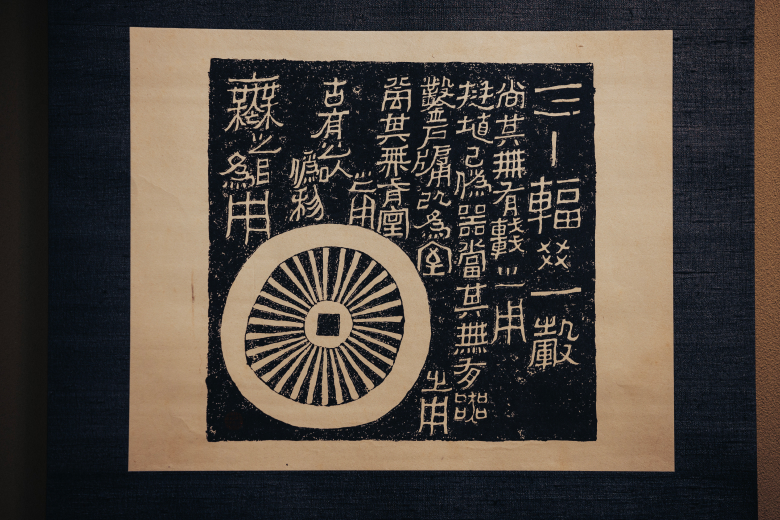 三十輻共一轂
當其無有車之用
挻埴以為器當其無有器
之用
鑿戶牖以為室
當其無有室
之用
古有之以
為利
無之以
為用